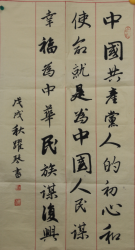 中國共產黨人的初心和
使命就是為中國人民謀
幸福為中華民族謀復興
戊戌秋躍琴書